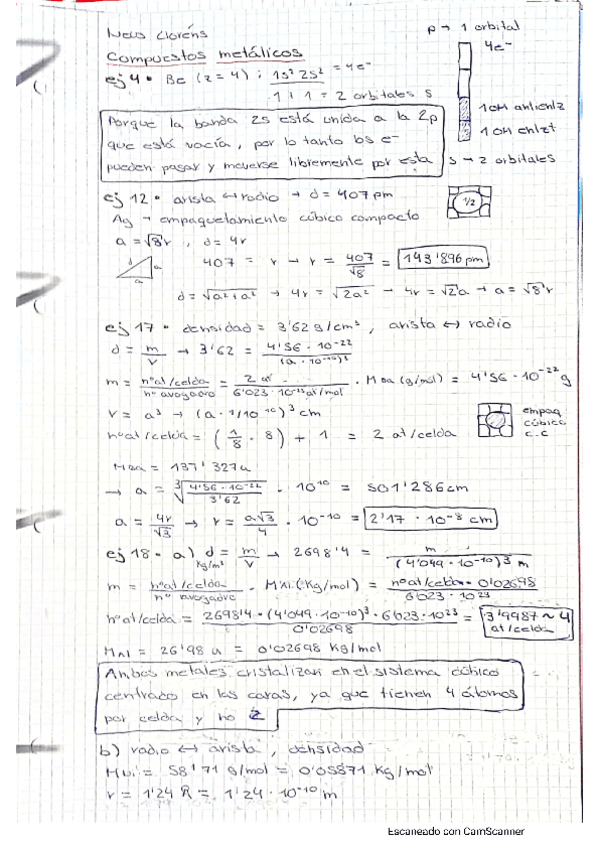 Neus Cloréns
Compuestos metálicos
p → 1 orbital
4e⁻
ej 4 • Be (z = 4) ; 1s² 2s² = 4e⁻
1 + 1 = 2 orbitales s
Porque la banda 2s está unida a la 2p
que está vacía, por lo tanto los e-
pueden pasar y moverse libremente por esta
1 OM antienlz
1 OM enlzt
s → 2 orbitales
ej 12 • arista ↔ radio → d = 407 pm
Ag → empaquetamiento cúbico compacto
1/2
a = √8 r , d = 4r
407 = r → r = 407/√8 = 143'896 pm
d a a
d = √a²+a² → 4r = √2a² → 4r = √2 a → a = √8 r
ej 17 • densidad = 3'62 g/cm³, arista ↔ radio
d = m/V → 3'62 = 4'56 · 10⁻²²/(a · 10⁻¹⁰)³
m = nº at/celda / nº avogadro = 2 at / 6'023 · 10²³ at/mol · M Ba (g/mol) = 4'56 · 10⁻²² g
V = a³ → (a · 1/10⁻¹⁰)³ cm
empaq
cúbico
c.c
nº at/celda = (1/8 · 8) + 1 = 2 at/celda
M Ba = 137'327 u
→ a = ³√4'56 · 10⁻²²/3'62 · 10¹⁰ = 501'286 cm
a = 4r/√3 → r = a√3/4 · 10⁻¹⁰ = 2'17 · 10⁻⁸ cm
ej 18 • a) d = m/V → 2698'4 = m/(4'049 · 10⁻¹⁰)³ m
Kg/m³
m = nº at/celda / nº avogadro · M Al (Kg/mol) = nº at/celda · 0'02698 / 6'023 · 10²³
nº at/celda = 2698'4 · (4'049 · 10⁻¹⁰)³ · 6'023 · 10²³ / 0'02698 = 3'9987 ~ 4 at/celda
M Al = 26'98 u = 0'02698 Kg/mol
Ambos metales cristalizan en el sistema cúbico
centrado en las caras, ya que tienen 4 átomos
por celda y no 2
b) radio ↔ arista, densidad
M Ni = 58'71 g/mol = 0'05871 Kg/mol
r = 1'24 Å = 1'24 · 10⁻¹⁰ m
Escaneado con CamScanner